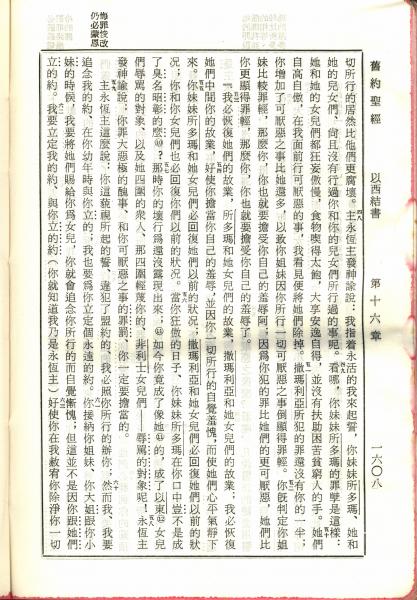 舊約聖經　以西結書　第十六章　一六〇八
切所行的居然比他們更腐壞。主永恆主發神諭說：我指着永活的我來起誓，你妹妹所多瑪、她和
她的兒女們、尙且沒有行過你和你的兒女們所行過的事呢。看哪，你妹妹所多瑪的罪孽是這樣：
她和她的女兒們都狂妄傲慢，食物喫得太飽，大享安逸自得，並沒有扶助困苦貧窮人的手。她們
自高自傲，在我面前行可厭惡的事，我看見便將她們除掉。撒瑪利亞所犯的罪還沒有你的一半；
你增加了可厭惡之事比她還多，以致你姐妹因你所行一切可厭惡之事倒顯得罪輕。你旣判定你姐
妹比較罪輕，那麼你、你也就要擔受你自己的羞辱阿。因爲你犯的罪比她們的更可厭惡，她們比
你更顯得罪輕，那麼你、你也就要擔受你自己的羞辱了。
『我必恢復她們的故業，所多瑪和她女兒們的故業，撒瑪利亞和她女兒們的故業；我必恢復
她們中間你的故業，好使你擔當你自己的羞辱，並因你一切所行的自覺羞愧，而使她們心平氣靜下
來。你妹妹所多瑪和她女兒們必回復她們以前的狀況，撒瑪利亞和她女兒們必回復她們以前的狀
況；你和你女兒們也必回復你們以前的狀況。當你狂傲的日子、你妹妹所多瑪在你口中豈不是成
了臭名昭彰的麼？那時你的壞行爲還沒露現出來；如今你竟成了像她的，成了以東女兒
們辱罵的對象、以及她四圍的衆人、那四圍輕蔑你的、非利士女兒們——辱罵的對象呢！永恆主
發神諭說：你罪大惡極的醜事、和你可厭惡之事的罪罰、你一定要擔當的。
主永恆主這麼說：你這藐視所起的誓、違犯了盟約的、我必照你所行的辦你。然而我、我要
追念我的約、在你幼年時與你立的；我也要爲你立定個永遠的約。你接納你姐妹、你大姐跟你小
妹的時候，我要將她們賜給你爲女兒，你就會追念你所行的而自覺慚愧；但這並不是因你跟她們
立的約。我要立定我的約、與你立的約（你就知道我乃是永恆主）好使你在我赦宥你除淨你一切
悔罪悛改
仍必蒙恩